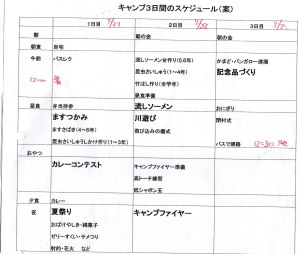 キャンプ3日間のスケジュール(案)
1日目 7/29
2日目 7/30
3日目
朝
朝の会
朝の会
朝食
自宅
午前
バスレク
流しソーメン台作り(5.6年)
かまど・バンガロー清掃
昆虫さいしゅう(1~4年)
記念品づくり
12:00 着
竹はし作り(全学年)
昼食準備
昼食
弁当持参
流しソーメン
おにぎり
ますつかみ
川遊び
閉村式
ますさばき(4~6年)
飛び込みの儀式
昆虫さいしゅうしかけ作り(1~3年)
バスで帰路
おやつ
カレーコンテスト
キャンプファイヤー準備
高トーチ練習
巨シャボン玉
夕食
カレー
夜
夏祭り
キャンプファイヤー
おばけやしき・綿菓子
ぜりーすくい・ヤメつり
射的・花火 など